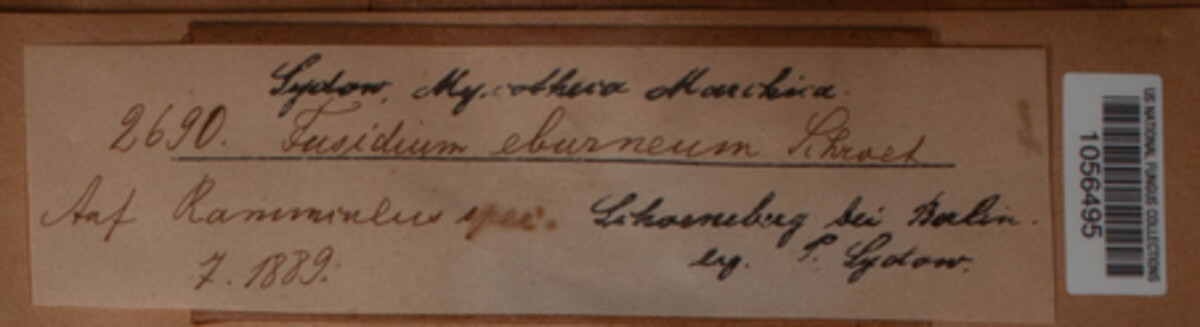 Sydow, Mycotheca Marchica.
2690. Fusidium eburneum Schroet
Auf Rannunculus spec. Schoeneberg bei Berlin.
7. 1889. leg. P. Sydow.
US NATIONAL FUNGUS COLLECTIONS
1056495